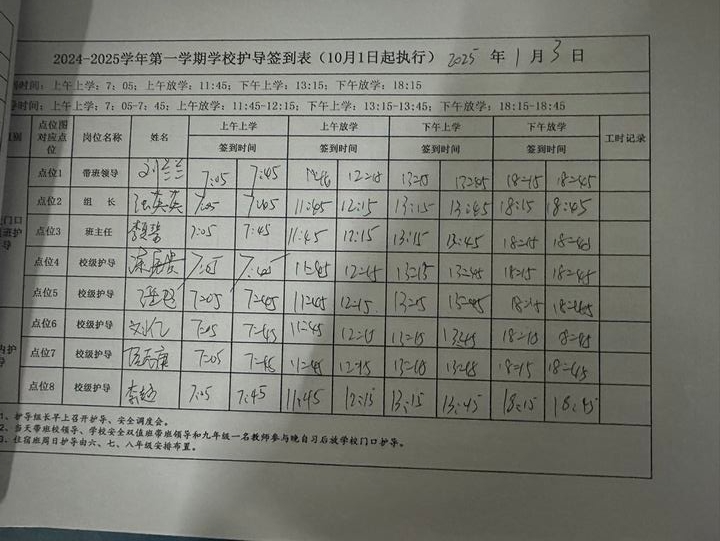 2024-2025学年第一学期学校护导签到表（10月1日起执行） 2025 年 1 月 3 日
时间：上午上学：7：05 上午放学：11:45；下午上学：13:15；下午放学：18:15
时间：上午上学：7：05-7：45；上午放学：11:45-12:15；下午上学：13:15-13:45；下午放学：18:15-18:45
别 点位图对应点位 岗位名称 姓名 上午上学 上午放学 下午上学 下午放学 工时记录
签到时间 签到时间 签到时间 签到时间
点位1 带班领导 刘兰兰 7:05 7:45 12:15 13:15 13:45 18:15 18:45
点位2 组 长 英英 7:05 7:45 11:45 12:15 13:15 13:45 18:15 18:45
点位3 班主任 7:05 7:45 11:45 12:15 13:15 13:45 18:15 18:45
点位4 校级护导 7:05 7:45 11:45 12:15 13:15 13:45 18:15 18:45
点位5 校级护导 7:05 7:45 11:45 12:15 13:15 13:45 18:15 18:45
点位6 校级护导 7:05 7:45 11:45 12:15 13:15 13:45 18:15 18:45
点位7 校级护导 7:05 7:45 11:45 12:15 13:15 13:45 18:15 18:45
点位8 校级护导 7:05 7:45 11:45 12:15 13:15 13:45 18:15 18:45
门口
班护
导
内护
导
1、护导组长早上召开护导、安全调度会。
2、当天带班校领导、学校安全双值班带班领导和九年级一名教师参与晚自习后放学校门口护导。
3、住宿班周日护导由六、七、八年级安排布置。